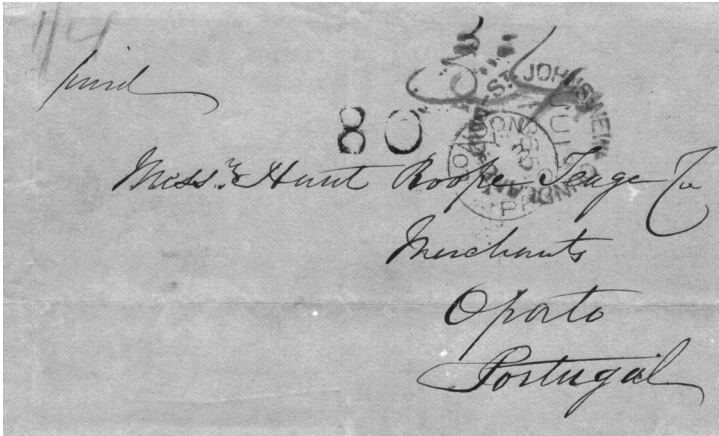 1/4
paid
80
ST. JOHN'S NEWFOUNDLAND
LONDON
PAID
Mess.rs Hunt Roope Teage & Co
Merchants
Oporto
Portugal